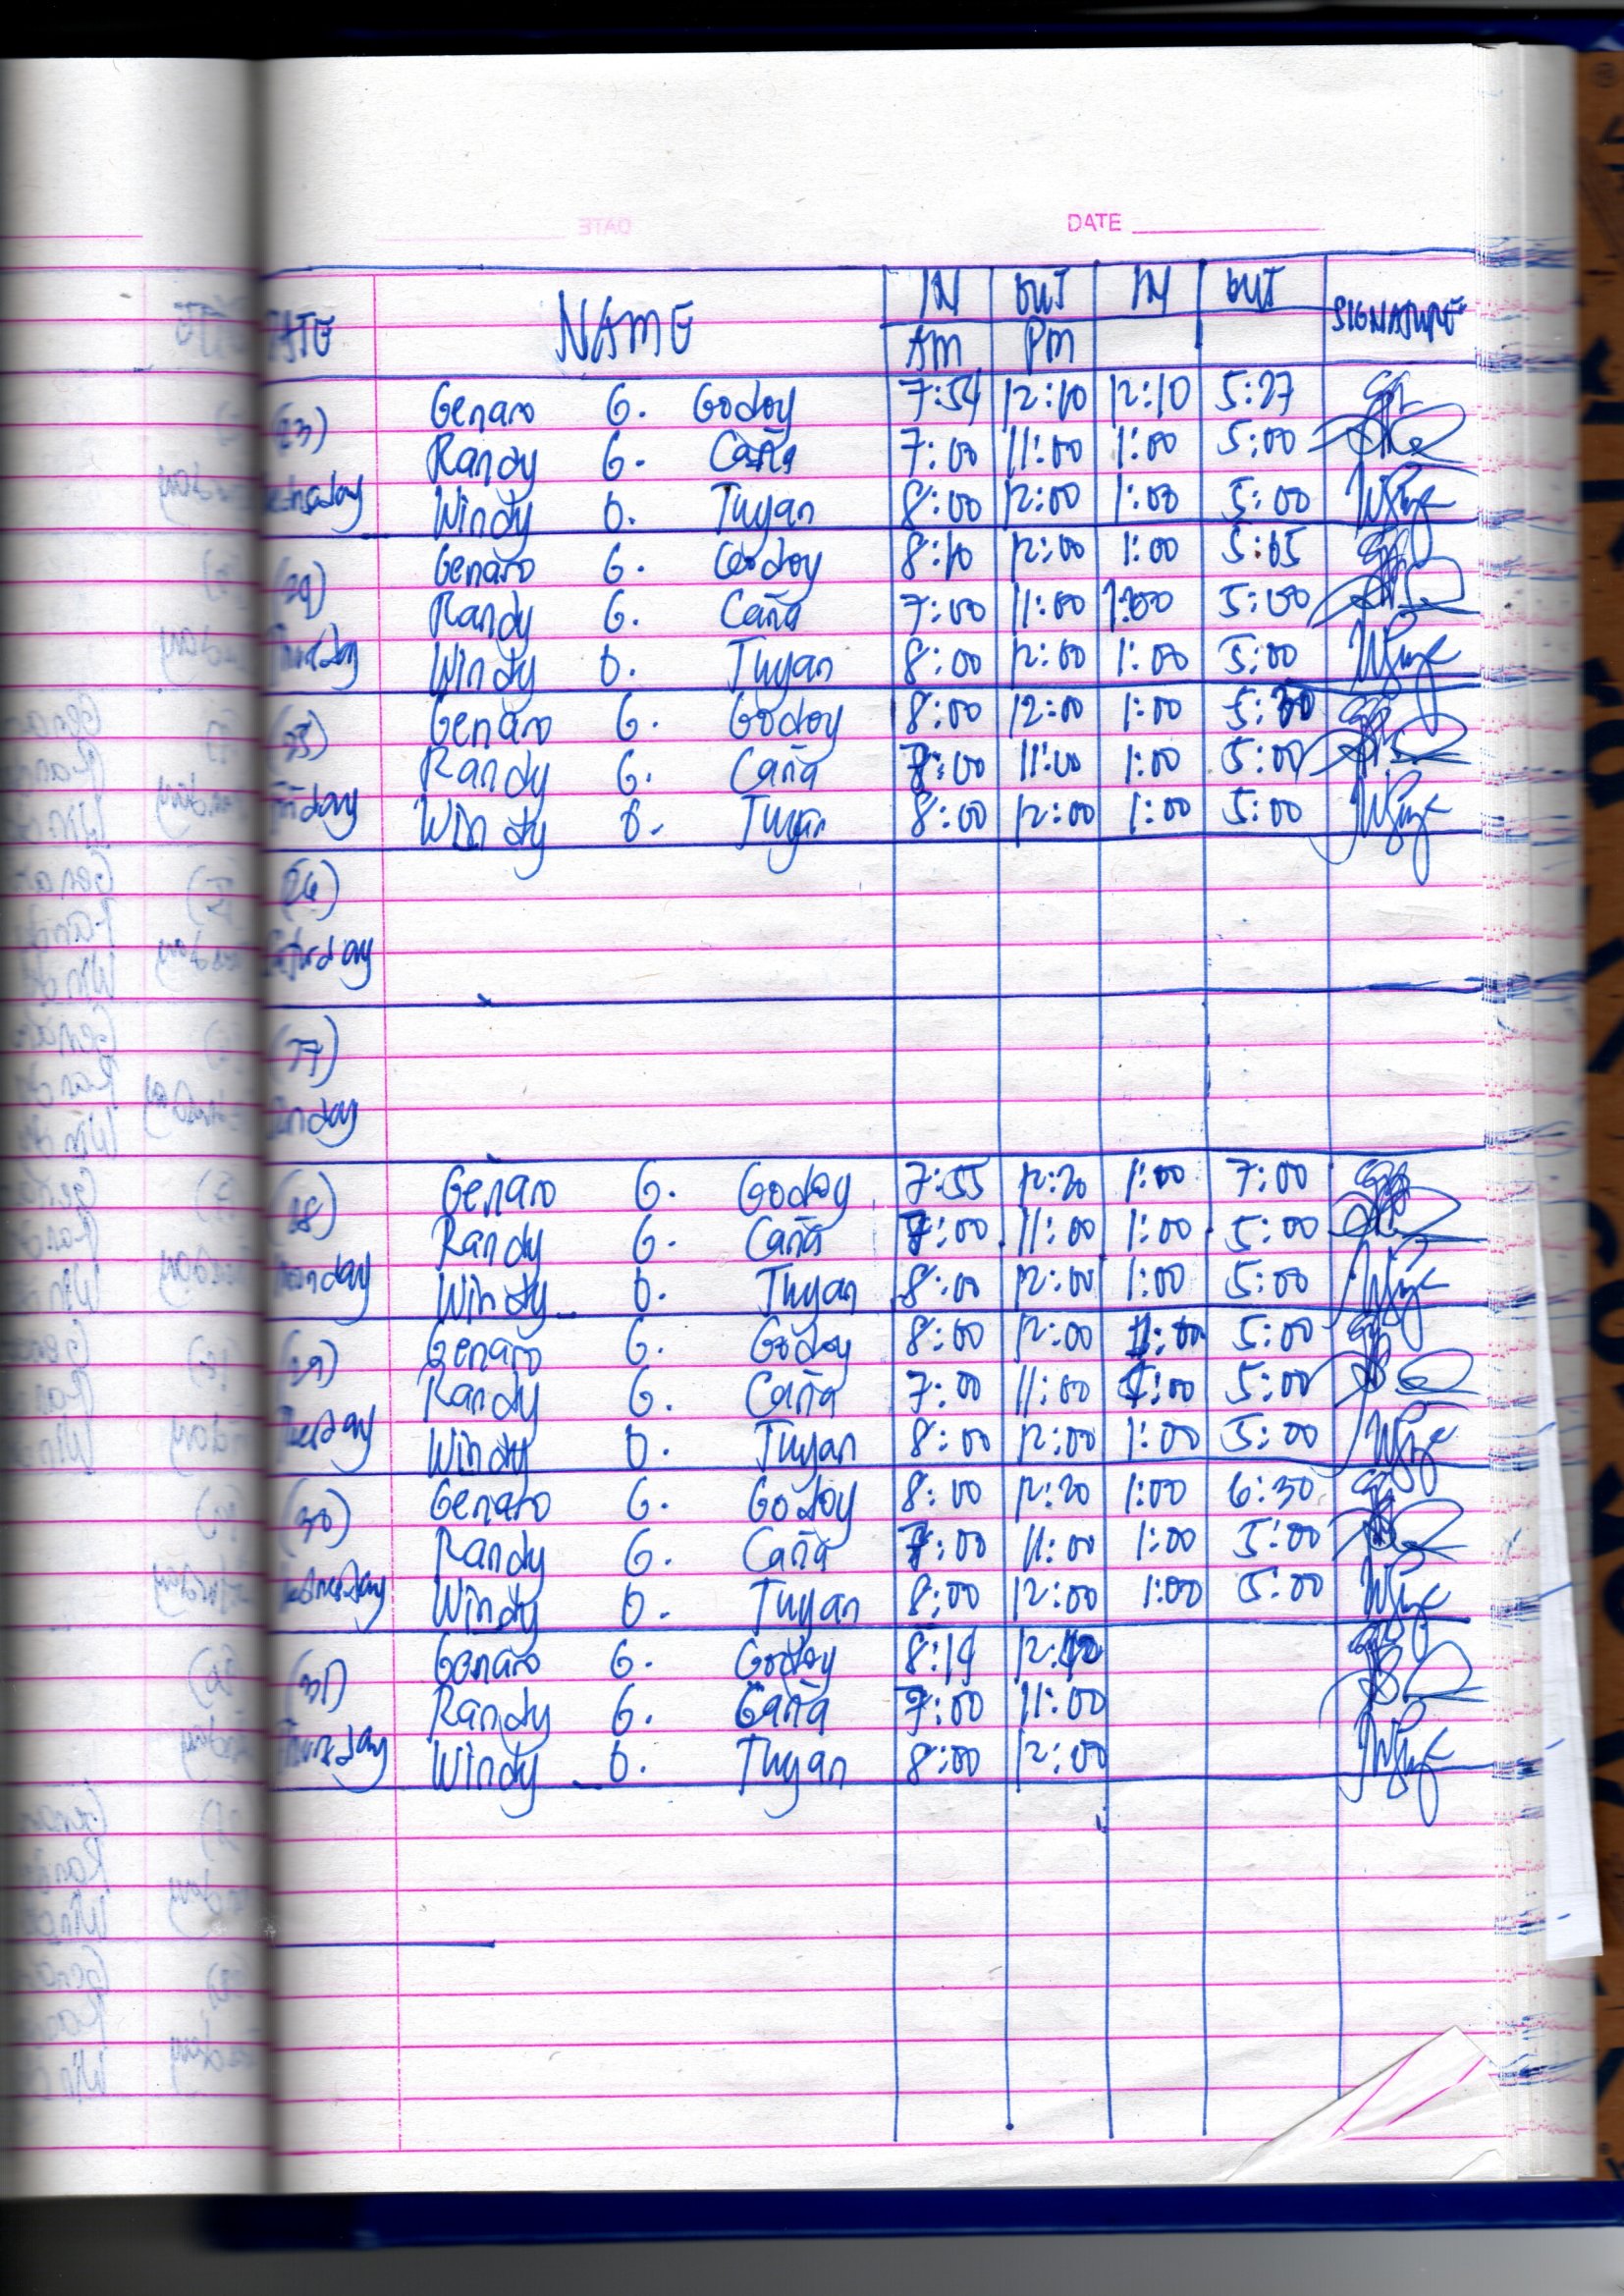 DATE
DATE NAME IN OUT IN OUT SIGNATURE
AM PM
(23) Genaro G. Godoy 7:54 12:10 12:10 5:27
Randy G. Caña 7:00 11:00 1:00 5:00
Wednesday Windy O. Tuyan 8:00 12:00 1:00 5:00
(24) Genaro G. Godoy 8:10 12:00 1:00 5:05
Randy G. Caña 7:00 11:00 1:00 5:00
Thursday Windy O. Tuyan 8:00 12:00 1:00 5:00
(25) Genaro G. Godoy 8:00 12:00 1:00 5:30
Randy G. Caña 7:00 11:00 1:00 5:00
Friday Windy O. Tuyan 8:00 12:00 1:00 5:00
(26)
Saturday
(27)
Sunday
(28) Genaro G. Godoy 7:55 12:20 1:00 7:00
Randy G. Caña 7:00 11:00 1:00 5:00
Monday Windy O. Tuyan 8:00 12:00 1:00 5:00
(29) Genaro G. Godoy 8:00 12:00 1:00 5:00
Randy G. Caña 7:00 11:00 1:00 5:00
Tuesday Windy O. Tuyan 8:00 12:00 1:00 5:00
(30) Genaro G. Godoy 8:00 12:20 1:00 6:30
Randy G. Caña 7:00 11:00 1:00 5:00
Wednesday Windy O. Tuyan 8:00 12:00 1:00 5:00
(31) Genaro G. Godoy 8:14
Randy G. Caña 7:00 11:00
Thursday Windy O. Tuyan 8:00 12:00